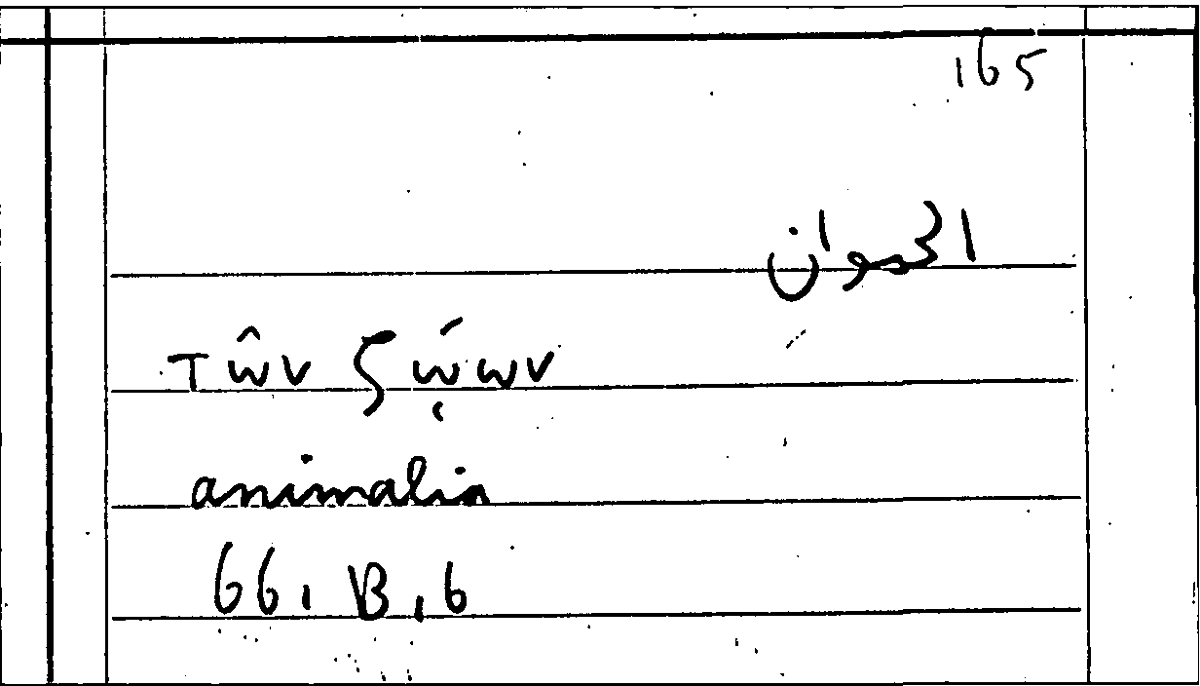 165
الحيوان
τῶν ζῴων
animalia
66, B, 6